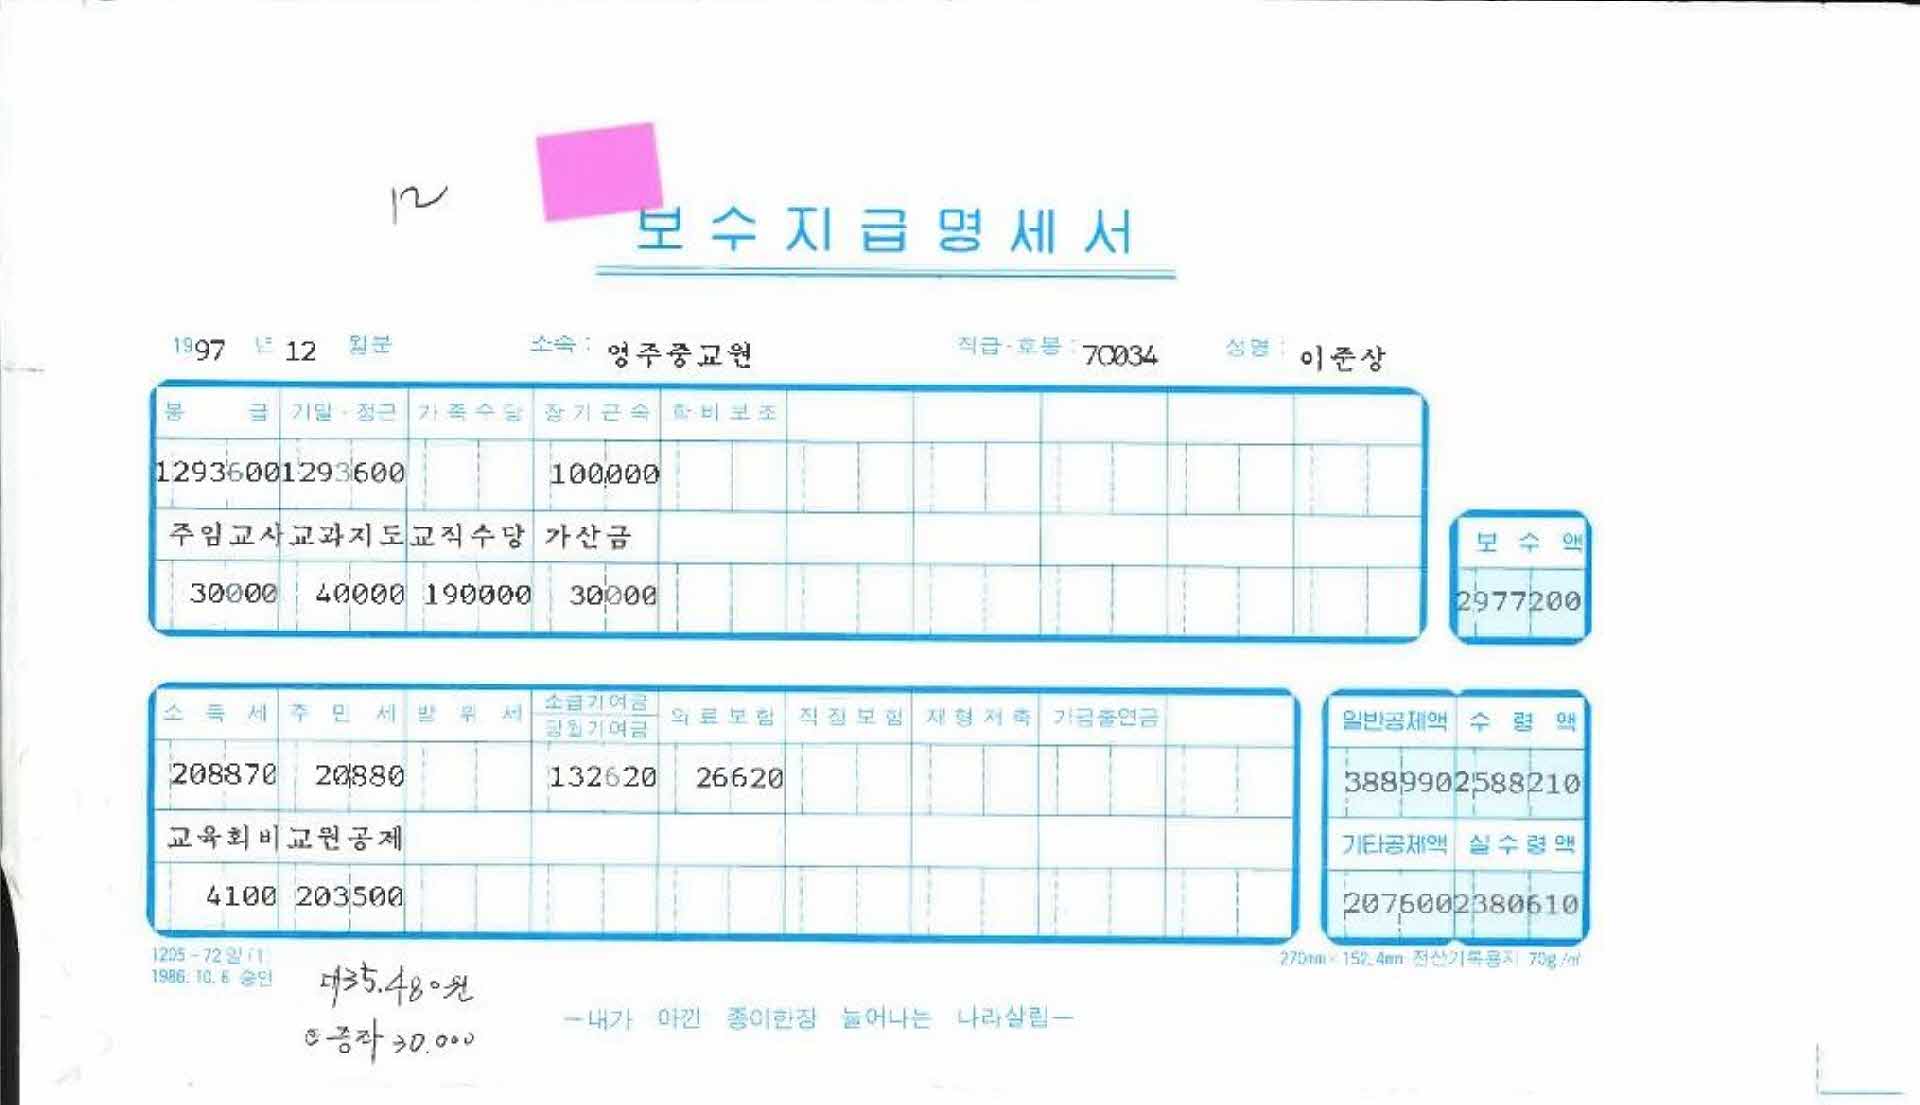 12
보수지급명세서
1997 년 12 월분 소속 : 영주중교원 직급·호봉 : 70034 성명 : 이준상
봉 급 기말·정근 가족수당 장기근속 학비보조
1293600 1293600 100000
주임교사 교과지도 교직수당 가산금
30000 40000 190000 30000
보 수 액
2977200
소 득 세 주 민 세 방 위 세 소급기여금 당월기여금 의료보험 직장보험 재형저축 기금출연금
208870 20880 132620 26620
교육회비 교원공제
4100 203500
일반공제액 수 령 액
388990 2588210
기타공제액 실수령액
207600 2380610
1205-72일(1)
1986. 10. 6 승인
270mm×152.4mm 전산기록용지 70g/㎡
35.480원
증좌 30.000
-내가 아낀 종이한장 늘어나는 나라살림-